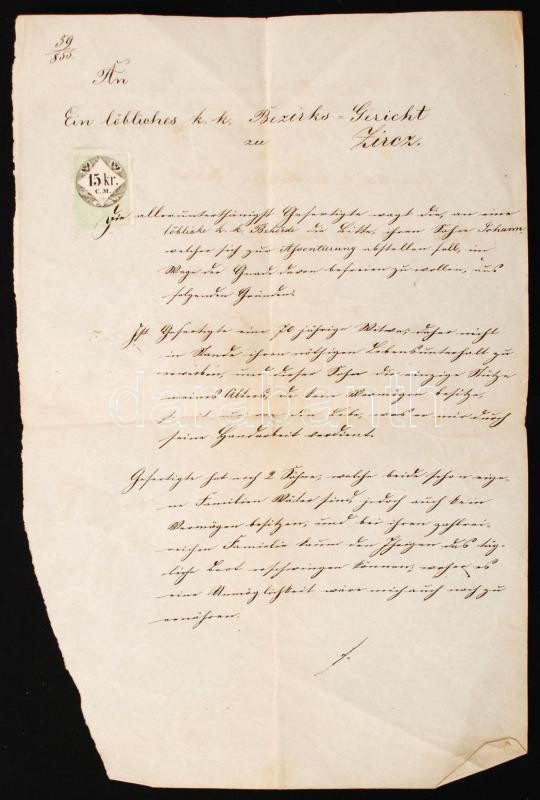 59
855.
An
Ein löbliches k. k. Bezirks = Gericht
zu Zircz.
15 kr.
C.M.
Die allerunterthänigst Gefertigte wagt die, an eine
löbliche k. k. Behörde die Bitte, ihren Sohn Johann
welcher sich zur Assentierung abstellen soll, im
Wege der Gnad davon befreien zu wollen, aus
folgenden Gründen:
Ist Gefertigte eine 70 jährige Witwe, daher nicht
im Stande ihren nöthigen Lebensunterhalt zu
erwirken, und dieser Sohn die einzige Stütze
meines Alters, da kein Vermögen besitze,
was er mir durch
seine Handarbeit verdient.
Gefertigte hat noch 2 Söhne, welche beide schon eige-
ne Familien Väter sind, jedoch auch kein
Vermögen besitzen, und bei ihren zahlrei-
reichen Familie kaum den Iherigen das täg-
liche Brot erschwingen können, woher es
eine Unmöglichkeit wäre mich auch noch zu
ernähren.
darabanth